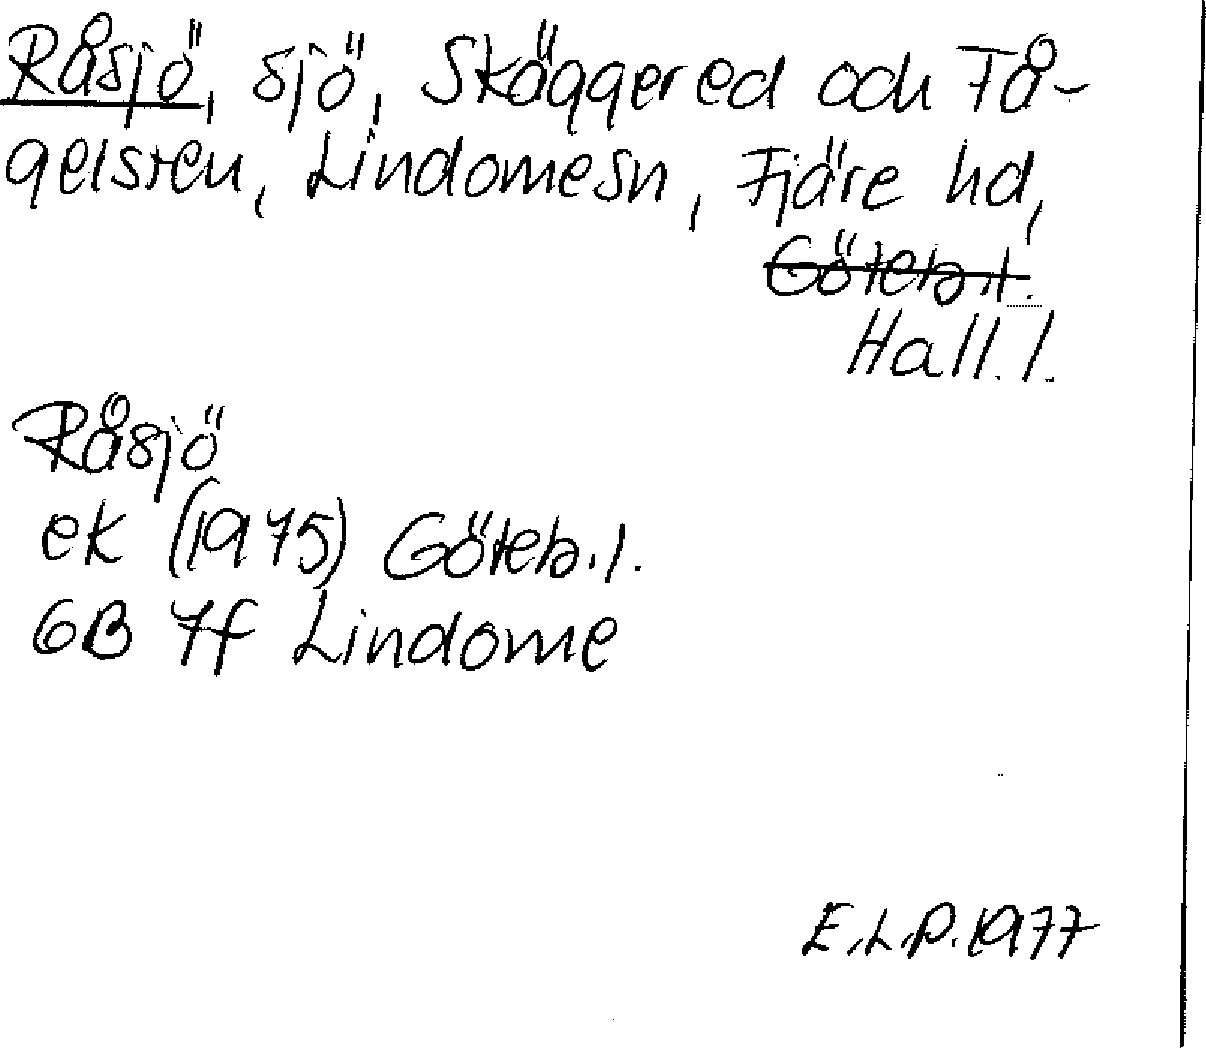 Råsjö, sjö, Skäggered och Få-
gelsten, Lindomesn, Fjäre hd,
Göteb.l.
Hall.l.
Råsjö
ek (1975) Göteb.l.
6B 7f Lindome
E.L.P. 1977